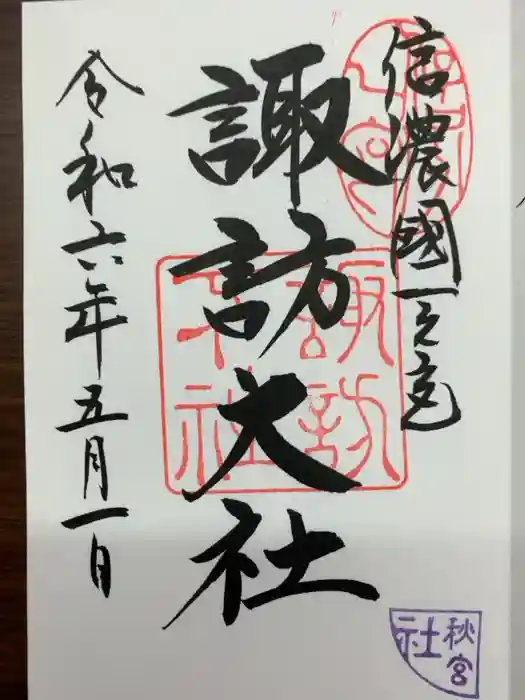 信濃國一之宮
諏訪大社
令和六年五月一日
諏訪大社
秋宮
社